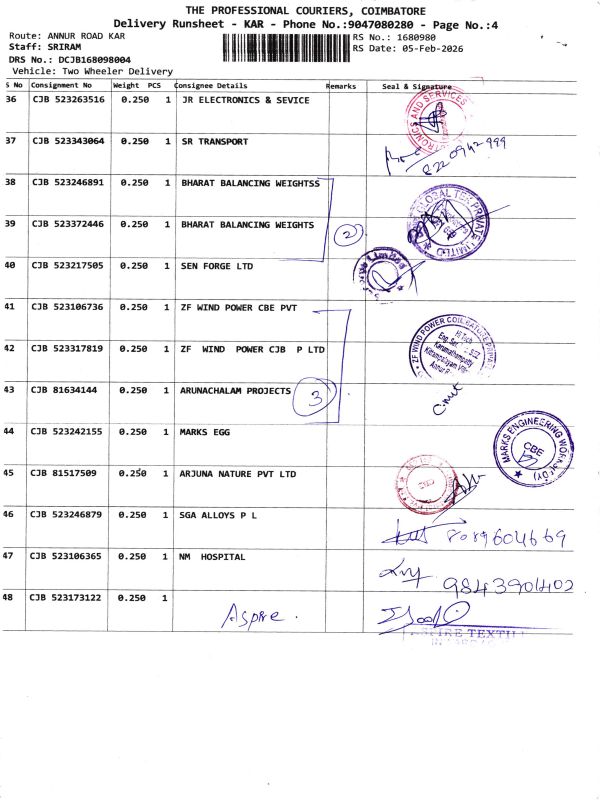 THE PROFESSIONAL COURIERS, COIMBATORE
Delivery Runsheet - KAR - Phone No.:9047080280 - Page No.:4
Route: ANNUR ROAD KAR
RS No.: 1680980
Staff: SRIRAM
RS Date: 05-Feb-2026
DRS No.: DCJB168098004
Vehicle: Two Wheeler Delivery
S No Consignment No Weight PCS Consignee Details Remarks Seal & Signature
36 CJB 523263516 0.250 1 JR ELECTRONICS & SEVICE
37 CJB 523343064 0.250 1 SR TRANSPORT
38 CJB 523246891 0.250 1 BHARAT BALANCING WEIGHTSS
39 CJB 523372446 0.250 1 BHARAT BALANCING WEIGHTS 2
40 CJB 523217505 0.250 1 SEN FORGE LTD
41 CJB 523106736 0.250 1 ZF WIND POWER CBE PVT
42 CJB 523317819 0.250 1 ZF WIND POWER CJB P LTD
43 CJB 81634144 0.250 1 ARUNACHALAM PROJECTS 3
44 CJB 523242155 0.250 1 MARKS EGG
MARKS ENGINEERING WORKS
CBE
45 CJB 81517509 0.250 1 ARJUNA NATURE PVT LTD
46 CJB 523246879 0.250 1 SGA ALLOYS P L 8089604669
47 CJB 523106365 0.250 1 NM HOSPITAL 9843901402
48 CJB 523173122 0.250 1 Aspire.